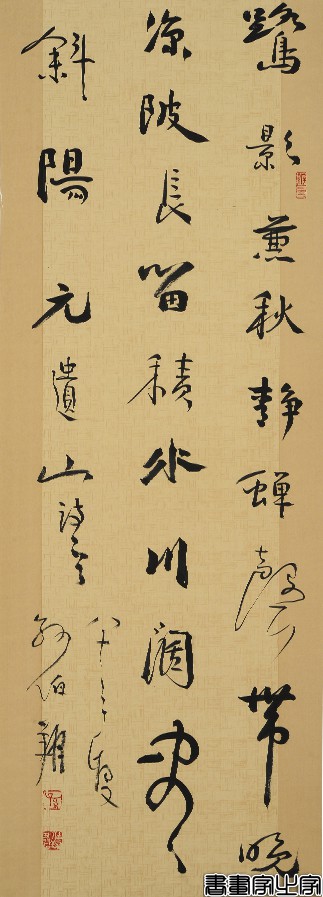 鷺影兼秋靜蟬聲帶晚
涼陂長留積水川闊盡
斜陽元遺山詩句
八十叟
伯
書畫家之家